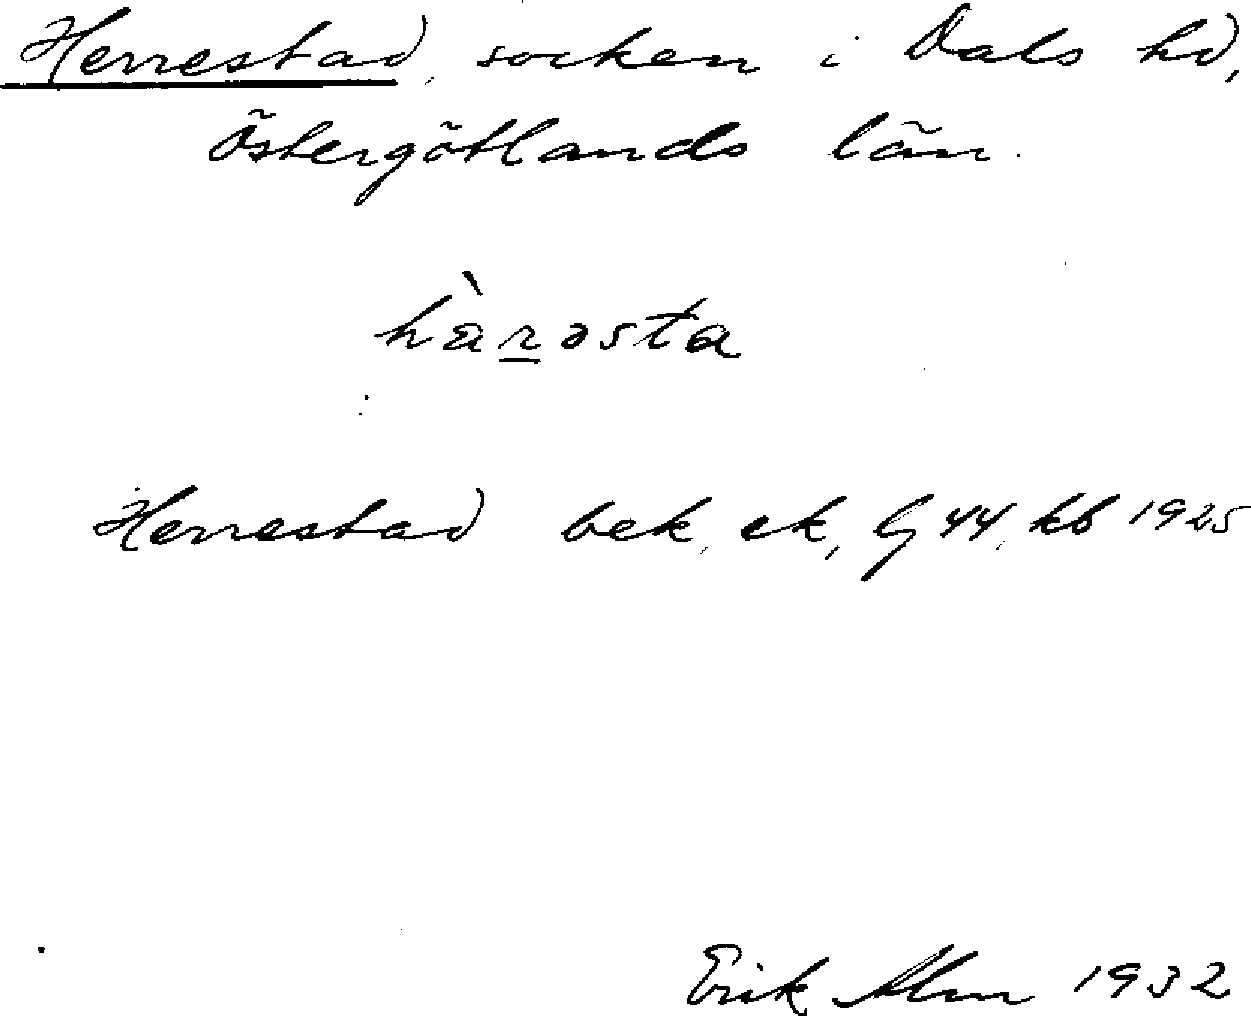 Herrestad, socken i Dals hd,
Östergötlands län.
hàrəsta
Herrestad bek, ek, G 44, kb 1925
Erik Alm 1932